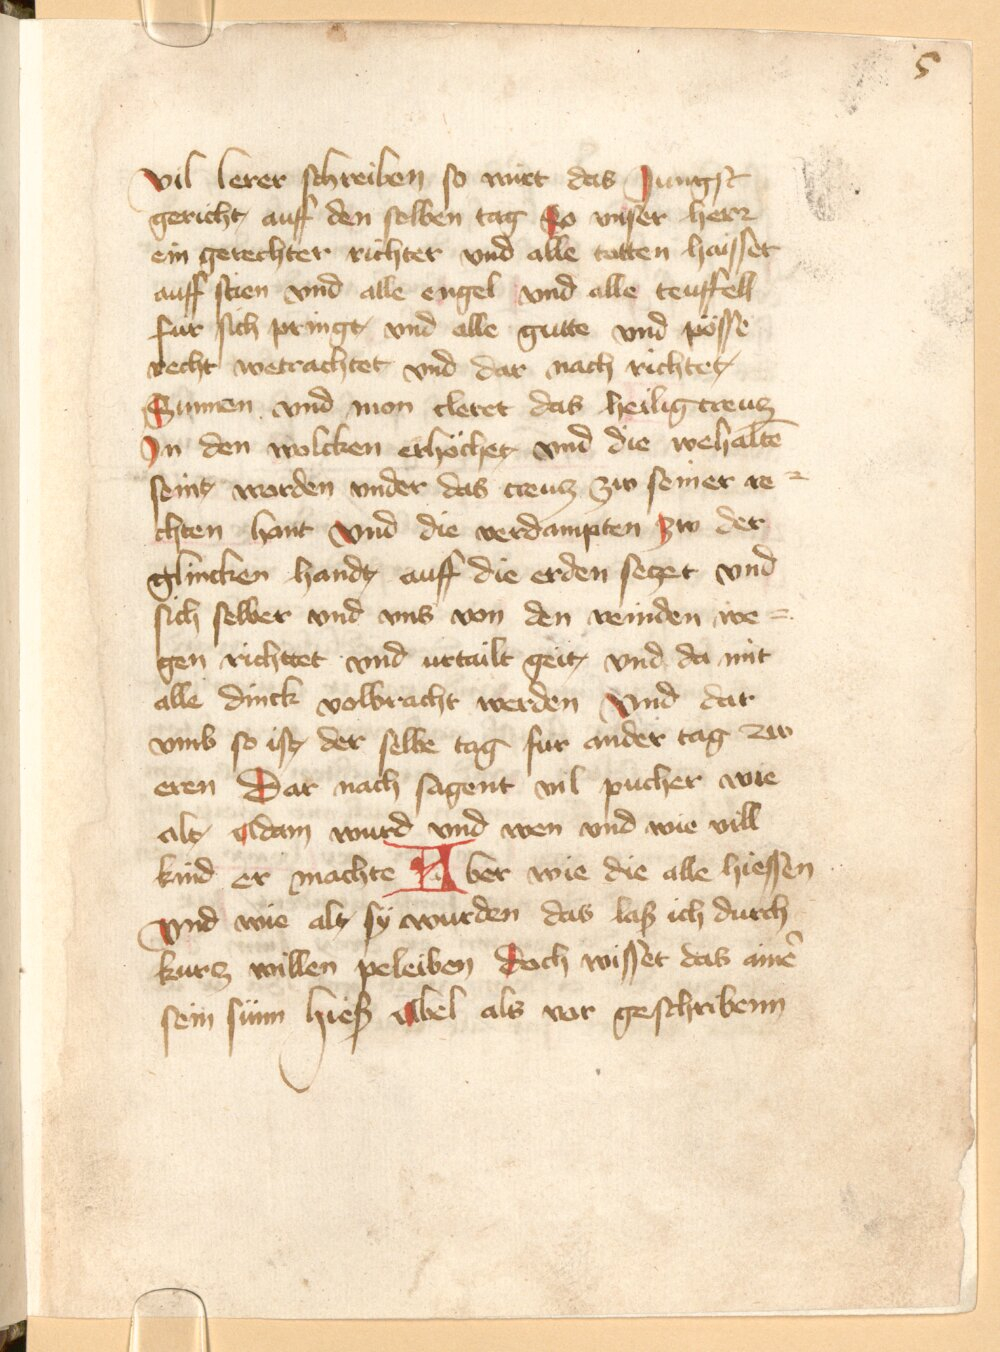 5
vil lerer schreiben so wirt das Jungst
gericht auff den selben tag So vnser herr
ein gerechter richter vnd alle totten haisset
auff sten vnd alle engel vnd alle teuffell
fur sich pringt vnd alle gutte vnd pösse
recht wetrachtet vnd dar nach richtet
Sunnen vnd mon cleret das heilig creucz
In den wolcken erhöchet vnd die wehaltē
seint worden vnder das creucz zw seiner re⸗
chten hant Vnd die verdampten zw der
glincken handt auff die erden seczet vnd
sich selber vnd vns von den veinden we⸗
gen richttet vnd vrtailt geit vnd da mit
alle dinck volbracht werden Vnd dar
vmb so ist der selbe tag fur ander tag zw
eren Dar nach sagent vil pucher wie
alt Adam wurd vnd wen vnd wie vill
kind er machte Aber wie die alle hiessen
Vnd wie alt sÿ wurden das laß ich durch
kurcz willen peleiben Doch wisset das ainē
sein sünn hieß Abel als vor geschribenn